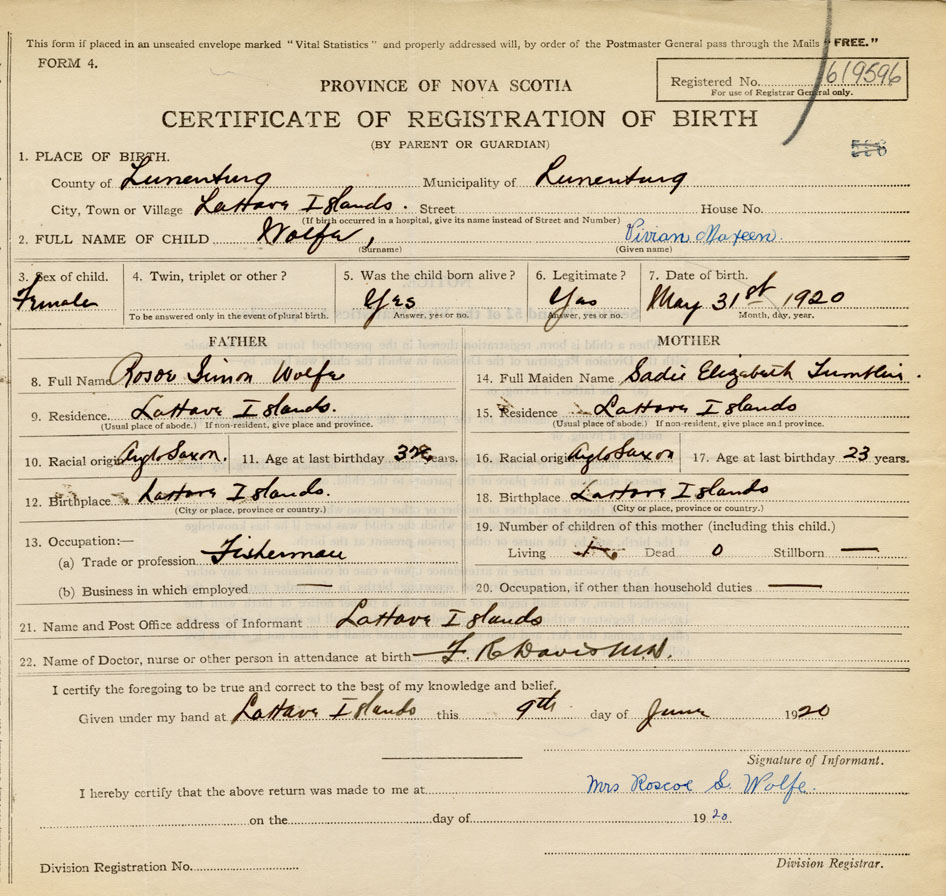 This form if placed in an unsealed envelope marked "Vital Statistics" and properly addressed will, by order of the Postmaster General pass through the Mails "FREE."
FORM 4.
PROVINCE OF NOVA SCOTIA
Registered No. 619596
For use of Registrar General only.
CERTIFICATE OF REGISTRATION OF BIRTH
(BY PARENT OR GUARDIAN)
1. PLACE OF BIRTH.
County of Lunenburg Municipality of Lunenburg
City, Town or Village LaHave Islands. Street House No.
(If birth occurred in a hospital, give its name instead of Street and Number)
2. FULL NAME OF CHILD Wolfe, Vivian Maxeen.
(Surname) (Given name)
3. Sex of child. 4. Twin, triplet or other? 5. Was the child born alive? 6. Legitimate? 7. Date of birth.
Female Yes Yes May 31st 1920
To be answered only in the event of plural birth. Answer, yes or no. Answer, yes or no. Month, day, year.
FATHER MOTHER
8. Full Name Roscoe Simon Wolfe 14. Full Maiden Name Sadie Elizabeth
9. Residence. LaHave Islands. 15. Residence LaHave Islands
(Usual place of abode.) If non-resident, give place and province. (Usual place of abode.) If non-resident, give place and province.
10. Racial origin Anglo Saxon. 11. Age at last birthday years. 16. Racial origin Anglo Saxon 17. Age at last birthday 23 years.
12. Birthplace LaHave Islands. 18. Birthplace LaHave Islands
(City or place, province or country.) (City or place, province or country.)
13. Occupation:— 19. Number of children of this mother (including this child.)
(a) Trade or profession Fisherman Living Dead 0 Stillborn —
(b) Business in which employed — 20. Occupation, if other than household duties —
21. Name and Post Office address of Informant LaHave Islands
22. Name of Doctor, nurse or other person in attendance at birth F. R. Davis M.D.
I certify the foregoing to be true and correct to the best of my knowledge and belief.
Given under my hand at LaHave Islands this 9th day of June 1920
Signature of Informant.
I hereby certify that the above return was made to me at Mrs Roscoe S. Wolfe.
on the day of 1920.
Division Registration No. Division Registrar.